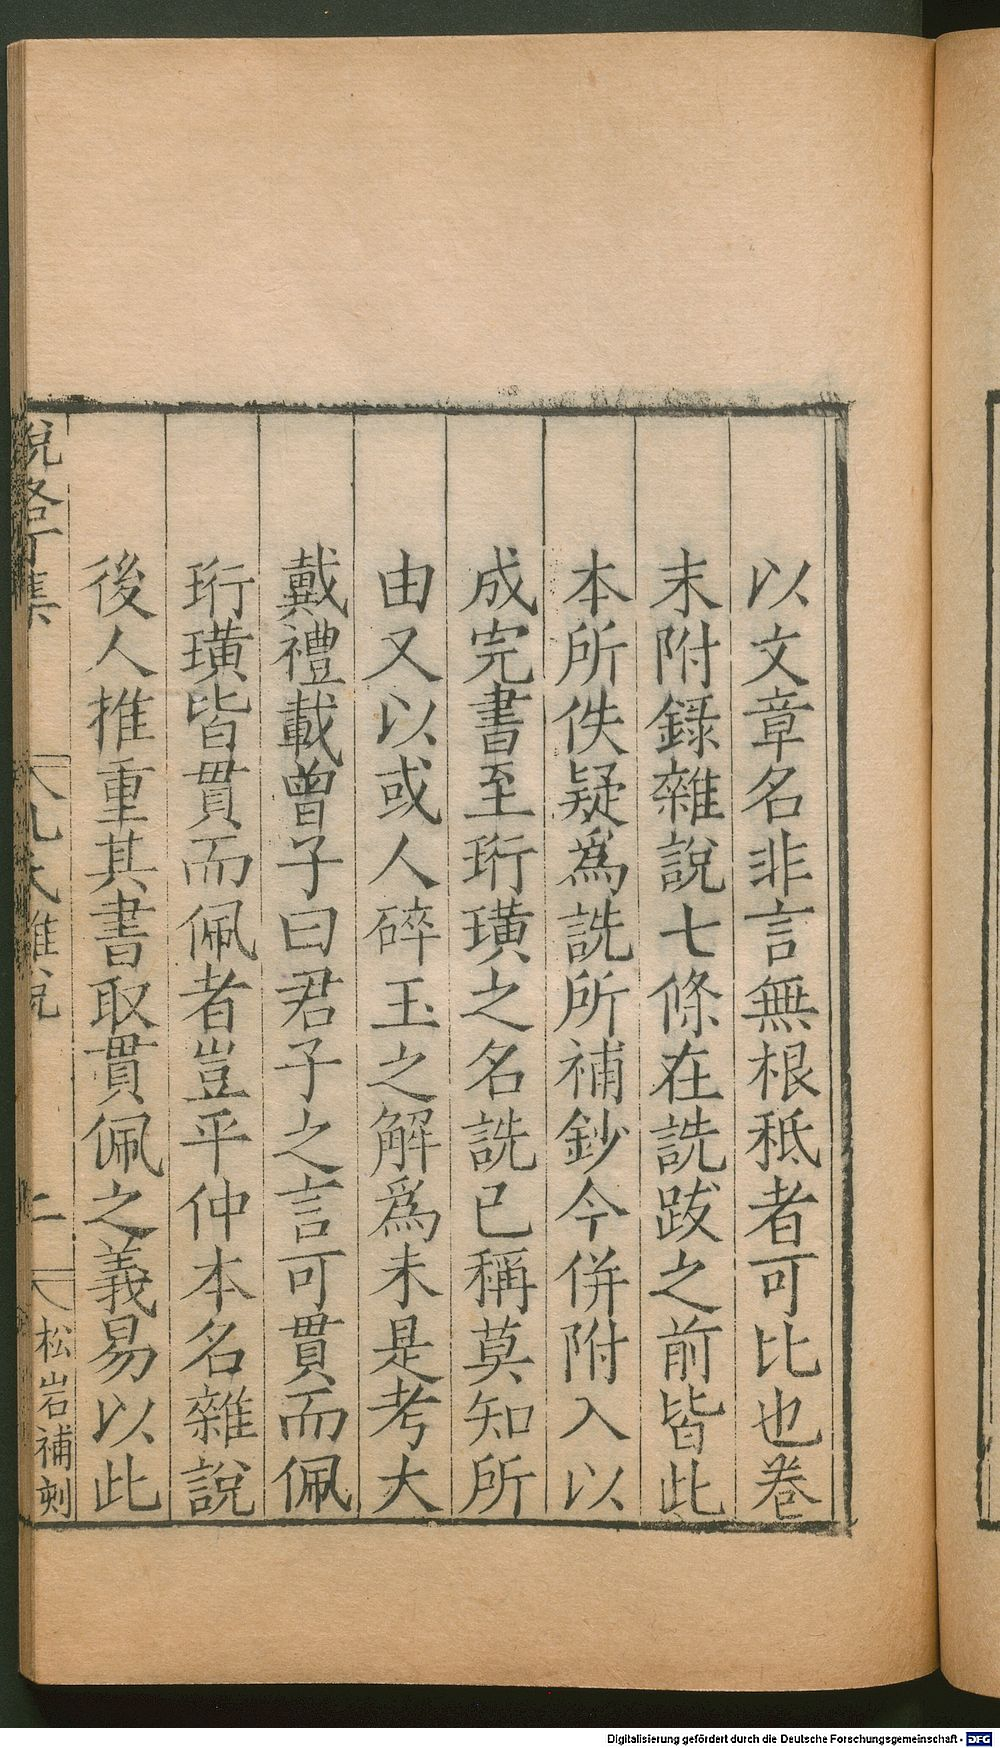 以文章名非言無根秪者可比也卷
末附錄雜說七條在詵跋之前皆此
本所佚疑爲詵所補鈔今併附入以
成完書至珩璜之名詵已稱莫知所
由又以或人碎玉之解爲未是考大
戴禮載曾子曰君子之言可貫而佩
珩璜皆貫而佩者豈平仲本名雜說
後人推重其書取貫佩之義易以此
松岩補刻
Digitalisierung gefördert durch die Deutsche Forschungsgemeinschaft - DFG